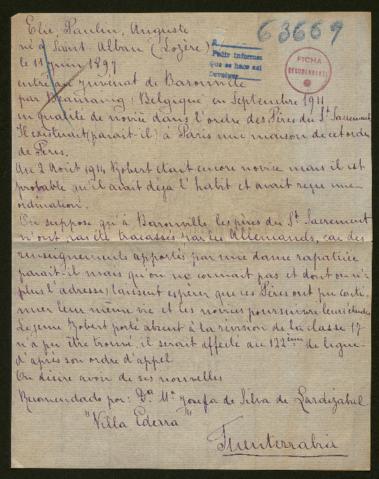 63669
Elie, Paulin, Auguste
né à Saint-Alban (Lozère)
le 11 juin 1897
A
Pedir informes
que se hace así
FICHA
entré au Juvenat de Baronville
par Beauraing (Belgique) en Septembre 1911
en qualité de novice dans l'ordre des Pères du St Sacrement
Il existerait (paraît-il) à Paris une maison de cet ordre
de Pères.
Au 2 Août 1914 Robert était encore novice mais il est
probable qu'il avait déjà l'habit et avait reçu une
ordination.
On suppose qu'à Baronville, les pères du St Sacrement
n'ont pas été tracassés par les Allemands, car des
renseignements apportés par une dame rapatriée
paraît-il mais qu'on ne connaît pas et dont on n'a
plus l'adresse) laissent espérer que ces Pères ont pu conti-
nuer leur même vie et les novices poursuivre leurs études
Le jeune Robert porté absent à la revision de la classe 17
n'a pu être trouvé, il serait affecté au 122ème de ligne
d'après son ordre d'appel
On désire avoir de ses nouvelles
Recomendado por: Dª Mª Josefa de Silva de Lardizabal
"Villa Ederra"
Fuenterrabia